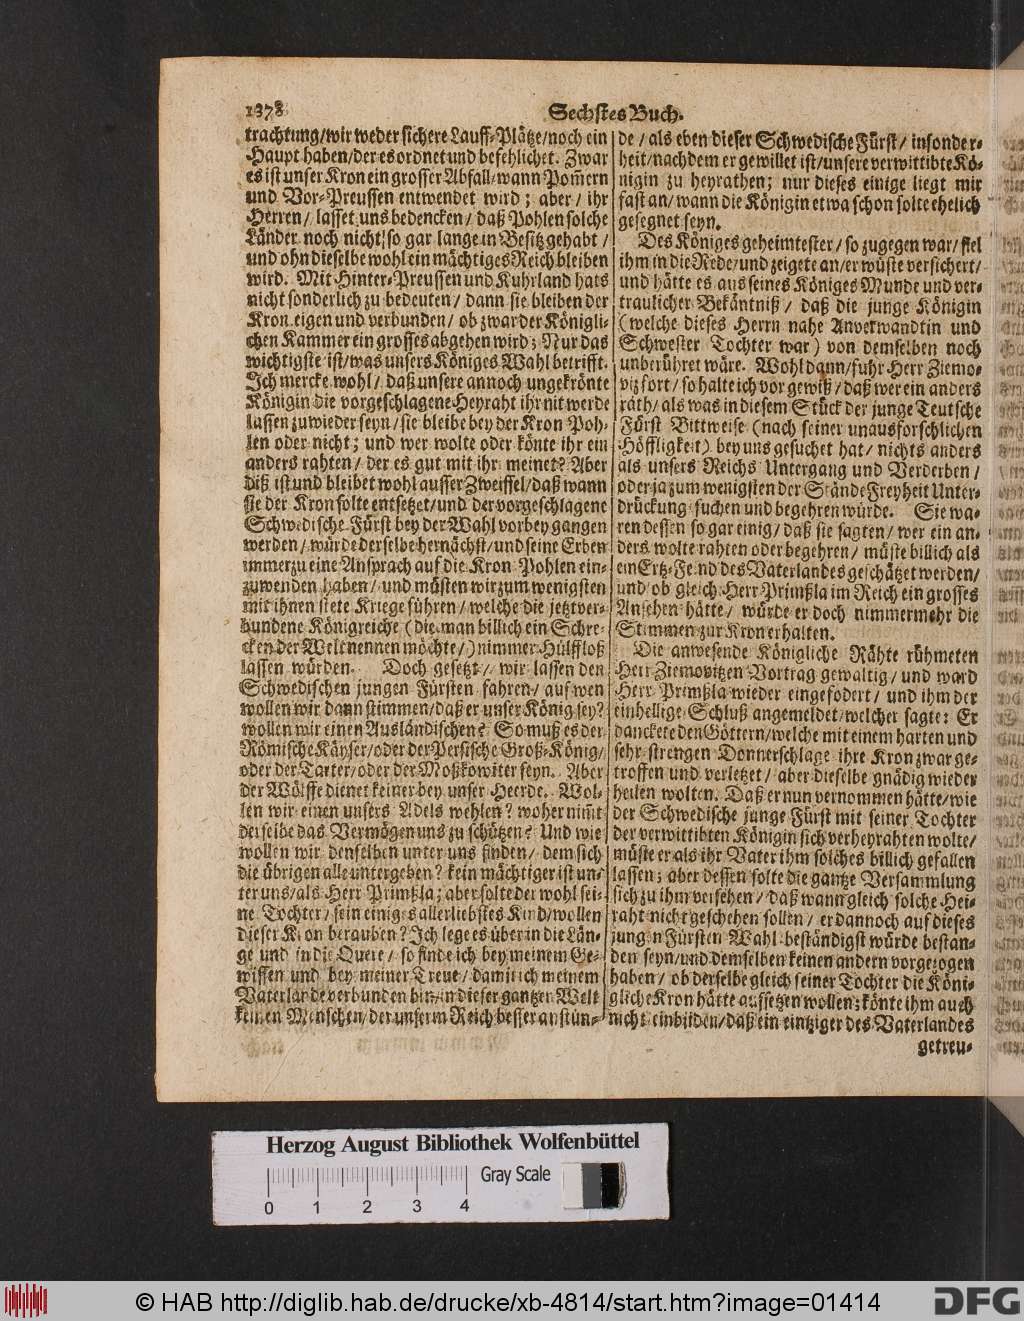 1378
Sechstes Buch.
trachtung/ wir weder sichere Lauff-Plätze/ noch ein
Haupt haben/ der es ordnet und befehlichet. Zwar
es ist unser Kron ein grosser Abfall/ wann Pom̃ern
und Vor-Preussen entwendet wird; aber/ ihr
Herren/ lasset uns bedencken/ daß Pohlen solche
Länder noch nicht so gar lange in Besitz gehabt/
und ohn dieselbe wohl ein mächtiges Reich bleiben
wird. Mit Hinter-Preussen und Kuhrland hats
nicht sonderlich zu bedeuten/ dann sie bleiben der
Kron eigen und verbunden/ ob zwar der Königli-
chen Kammer ein grosses abgehen wird; Nur das
wichtigste ist/ was unsers Königes Wahl betrifft.
Ich mercke wohl/ daß unsere annoch ungekrönte
Königin die vorgeschlagene Heyraht ihr nit werde
lassen zuwieder seyn/ sie bleibe bey der Kron Poh-
len oder nicht; und wer wolte oder könte ihr ein
anders rahten/ der es gut mit ihr meinet? Aber
diß ist und bleibet wohl ausser Zweiffel/ daß wann
sie der Kron solte entsetzet/ und der vorgeschlagene
Schwedische Fürst bey der Wahl vorbey gangen
werden/ würde derselbe hernächst/ und seine Erben
immerzu eine Ansprach auf die Kron Pohlen ein-
zuwenden haben/ und müsten wir zum wenigsten
mit ihnen stete Kriege führen/ welche die jetzt ver-
bundene Königreiche (die man billich ein Schre-
cken der Welt nennen möchte/) nimmer Hülffloß
lassen würden. Doch gesetzt/ wir lassen den
Schwedischen jungen Fürsten fahren/ auf wen
wollen wir dann stimmen/ daß er unser König sey?
wollen wir einen Ausländischen? So muß es der
Römische Käyser/ oder der Persische Groß-König/
oder der Tarter/ oder der Moßkowiter seyn. Aber
der Wölffe dienet keiner bey unser Heerde. Wol-
len wir einen unsers Adels wehlen? woher nim̃t
derselbe das Vermögen uns zu schützen? Und wie
wollen wir denselben unter uns finden/ dem sich
die übrigen alle untergeben? kein mächtiger ist un-
ter uns/ als Herr Primßla; aber solte der wohl sei-
ne Tochter/ sein einiges allerliebstes Kind/ wollen
dieser Kron berauben? Ich lege es über in die Län-
ge und in die Quere/ so finde ich bey meinem Ge-
wissen und bey meiner Treue/ damit ich meinem
Vaterlande verbunden bin/ in dieser gantzen Welt
keinen Menschen/ der unserm Reich besser anstün-
de/ als eben dieser Schwedische Fürst/ insonder-
heit/ nachdem er gewillet ist/ unsere verwittibte Kö-
nigin zu heyrathen; nur dieses einige liegt mir
fast an/ wann die Königin etwa schon solte ehelich
gesegnet seyn.
Des Königes geheimtester/ so zugegen war/ fiel
ihm in die Rede/ und zeigete an/ er wüste versichert/
und hätte es aus seines Königes Munde und ver-
traulicher Bekäntniß/ daß die junge Königin
(welche dieses Herrn nahe Anverwandtin und
Schwester Tochter war) von demselben noch
unberühret wäre. Wohl dann/ fuhr Herr Ziemo-
viz fort/ so halte ich vor gewiß/ daß wer ein anders
räth/ als was in diesem Stück der junge Teutsche
Fürst Bittweise (nach seiner unausforschlichen
Höffligkeit) bey uns gesuchet hat/ nichts anders
als unsers Reichs Untergang und Verderben/
oder ja zum wenigsten der Stände Freyheit Unter-
drückung suchen und begehren würde. Sie wa-
ren dessen so gar einig/ daß sie sagten/ wer ein an-
ders wolte rahten oder begehren/ müste billich als
ein Ertz-Feind des Vaterlandes geschätzet werden/
und ob gleich Herr Primßla im Reich ein grosses
Ansehen hätte/ würde er doch nimmermehr die
Stimmen zur Kron erhalten.
Die anwesende Königliche Rähte rühmeten
Herr Ziemovitzen Vortrag gewaltig/ und ward
Herr Primßla wieder eingefodert/ und ihm der
einhellige Schluß angemeldet/ welcher sagte: Er
danckete den Göttern/ welche mit einem harten und
sehr strengen Donnerschlage ihre Kron zwar ge-
troffen und verletzet/ aber dieselbe gnädig wieder
heilen wolten. Daß er nun vernommen hätte/ wie
der Schwedische junge Fürst mit seiner Tochter
der verwittibten Königin sich verheyrahten wolte/
müste er als ihr Vater ihm solches billich gefallen
lassen; aber dessen solte die gantze Versammlung
sich zu ihm versehen/ daß wann gleich solche Hei-
raht nicht geschehen sollen/ er dannoch auf dieses
jungen Fürsten Wahl beständigst würde bestan-
den seyn/ und demselben keinen andern vorgezogen
haben/ ob derselbe gleich seiner Tochter die Köni-
gliche Kron hätte aufsetzen wollen; könte ihm auch
nicht einbilden/ daß ein eintziger des Vaterlandes
getreu-
Herzog August Bibliothek Wolfenbüttel
Gray Scale
0 1 2 3 4
© HAB http://diglib.hab.de/drucke/xb-4814/start.htm?image=01414
DFG